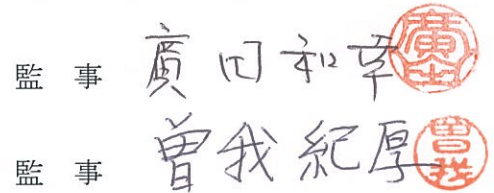 監 事 廣田和幸 廣田
監 事 曽我紀厚 曽我